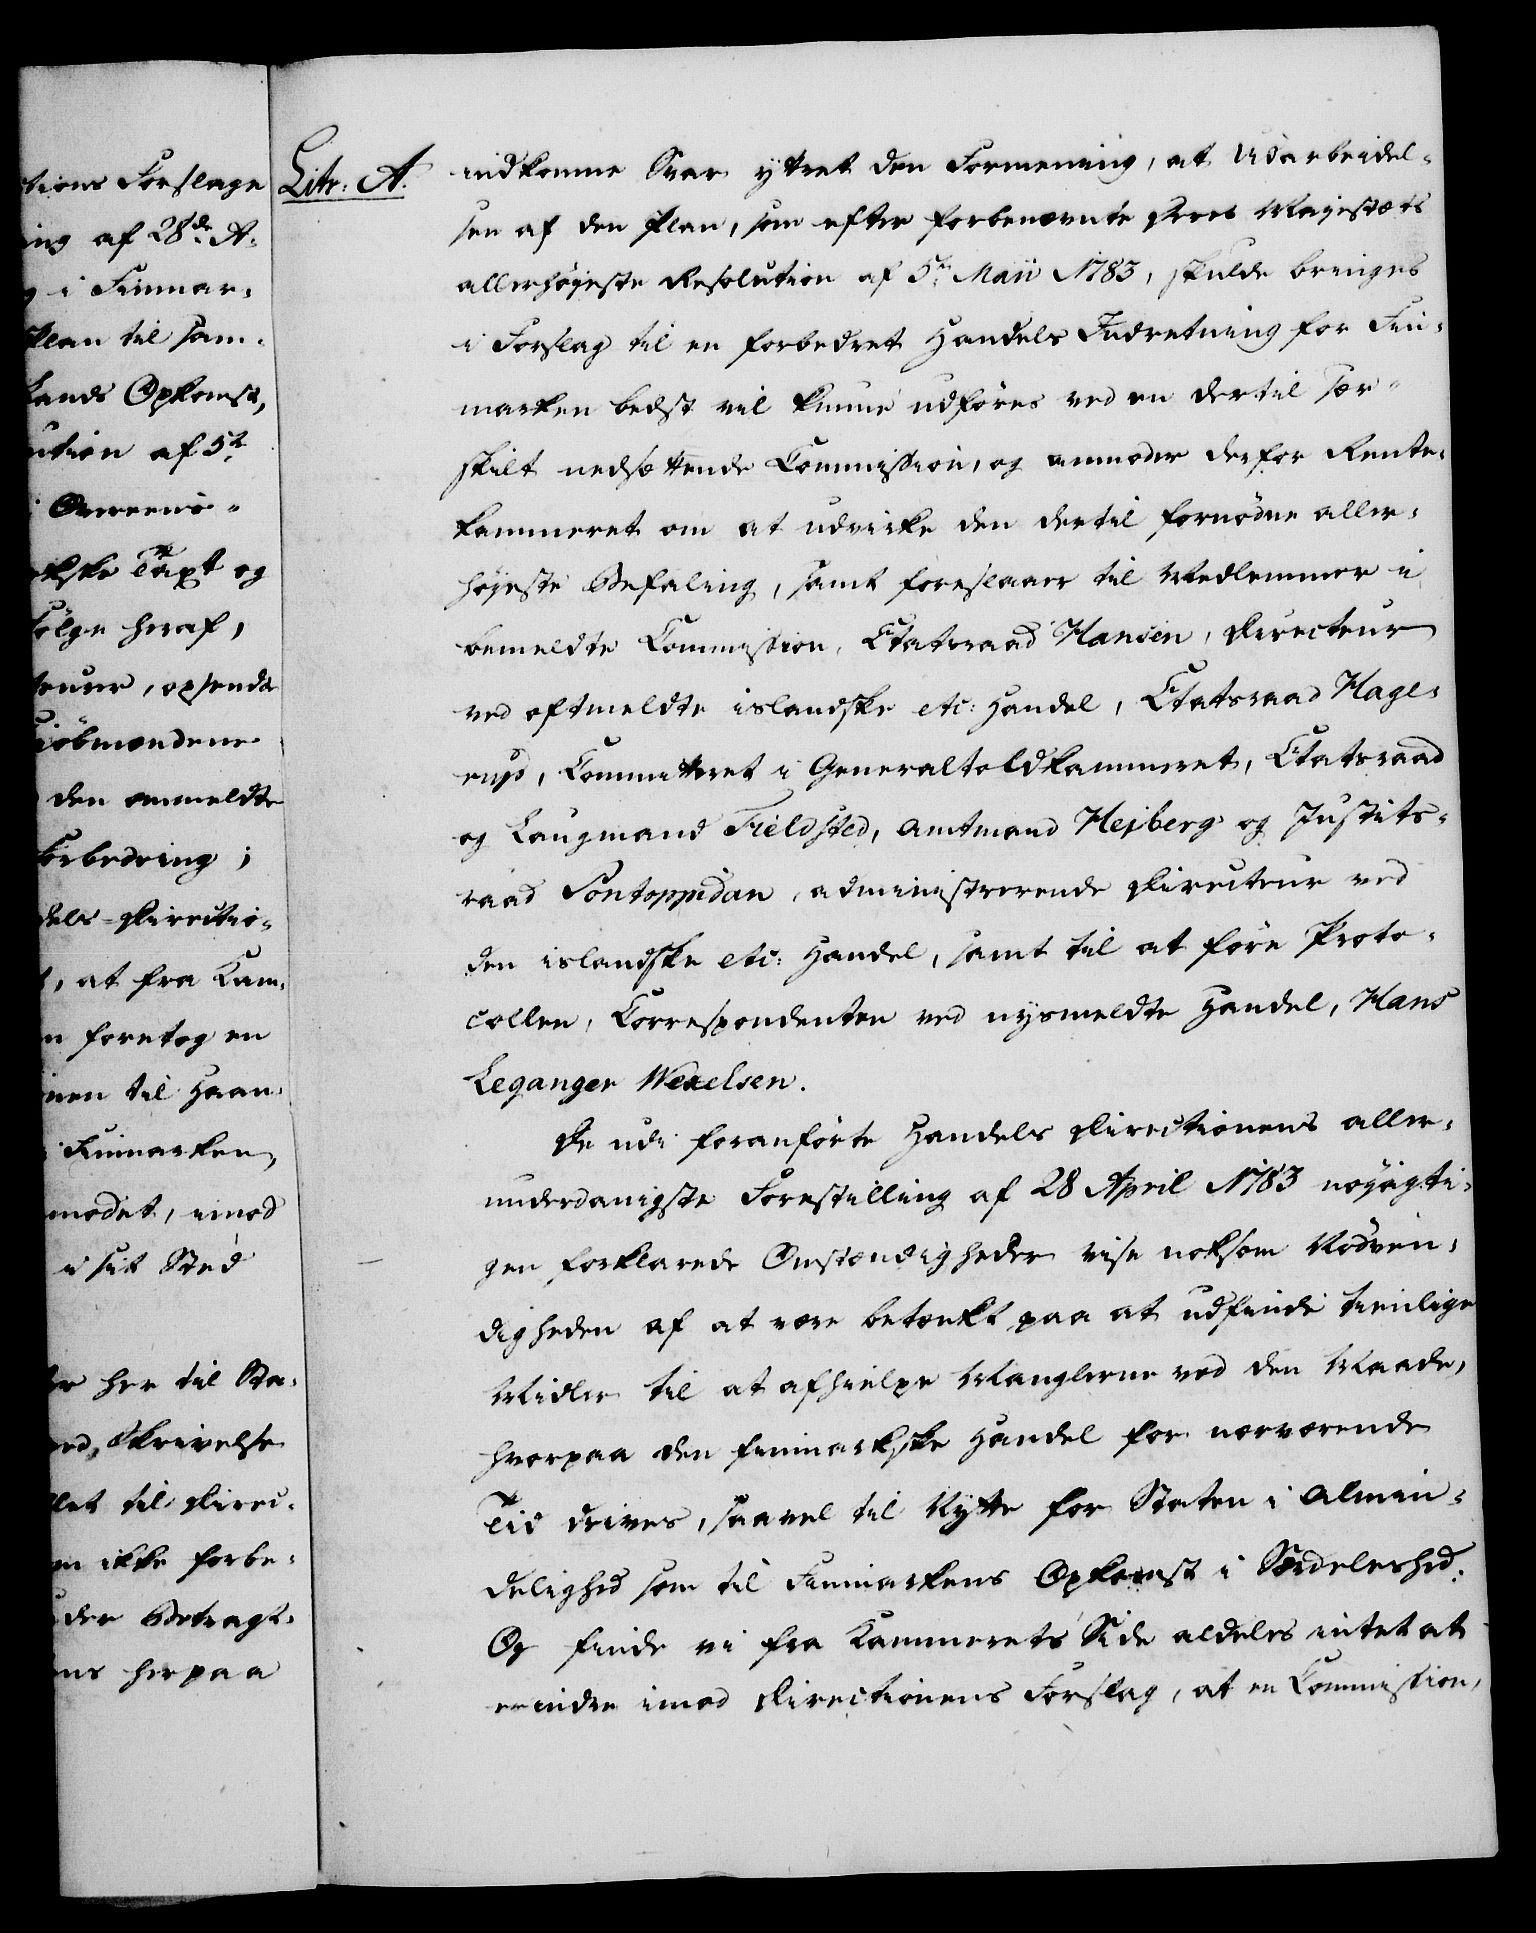 ctions Forslage
ing af 28de A-
g i Finmar-
Plan til sam-
Lands Opkomst,
ution af 5te
i Overeens-
ekske Taxt og
følge heraf,
teurer, opsende
Kiöbmændene
den anmeldte
Forbedring;
dels-Directio-
t, at fra Kam-
n foretog en
nen til Haan-
i Finmarken,
modet, imod
i sit Sted
er her til Sta-
ed, Skrivelse
let til Direc-
m ikke forbe-
der Betragt-
ens herpaa
Litr. A.
indkomne Svar yttret den Formening, at Udarbeidel-
sen af den Plan, som efter forbenævnte Deres Majestæts
allerhöjeste Resolution af 5te Maii 1783, skulde bringes
i Forslag til en forbedret Handels Indretning for Fin-
marken bedst vil kunne udföres ved en dertil sær-
skilt nedsættende Commission, og anmoder derfor Rente-
kammeret om at udvirke den dertil fornödne aller-
höjeste Befaling, samt foreslaaer til Medlemmer i
bemeldte Commission, Etatsraad Hansen, Directeur
ved oftmeldte islandske etc: Handel, Etatsraad Hage-
rup, Committeret i Generaltoldkammeret, Etatsraad
og Laugmand Fieldsted, Amtmand Hejberg og Justits-
raad Pontoppidan, administrerende Directeur ved
den islandske etc: Handel, samt til at före Proto-
collen, Correspondenten ved nysmeldte Handel, Hans
Leganger Wexelsen.
De udi foranförte Handels Directionens aller-
underdanigste Forestilling af 28 April 1783 nöjagti-
gen forklarede Omstændigheder vise noksom Nödven-
digheden af at være betænkt paa at udfinde tienlige
Midler til at afhielpe Manglerne ved den Maade,
hvorpaa den finmarkske Handel for nærværende
Tid drives, saavel til Nytte for Staten i Almin-
delighed som til Finmarkens Opkomst i Særdeleshed.
Og finde vi fra Kammerets Side aldeles intet at
erindre imod Directionens Forslag, at en Commission,